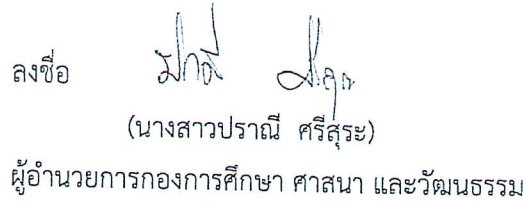 ลงชื่อ
(นางสาวปราณี ศรีสุระ)
ผู้อำนวยการกองการศึกษา ศาสนา และวัฒนธรรม